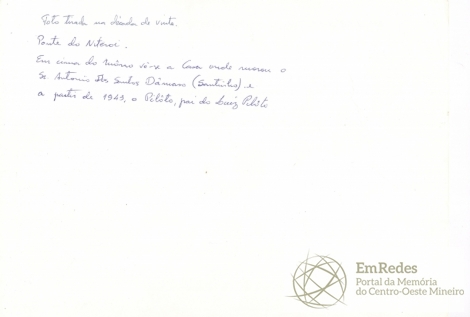 Foto tirada na década de vinte.
Ponte do Niterói.
Em cima do morro vê-se a casa onde morou o
Sr. Antonio dos Santos Dâmaso (Santinho) e
a partir de 1943, o Pilôto, pai do Luiz Pilôto
EmRedes
Portal da Memória
do Centro-Oeste Mineiro